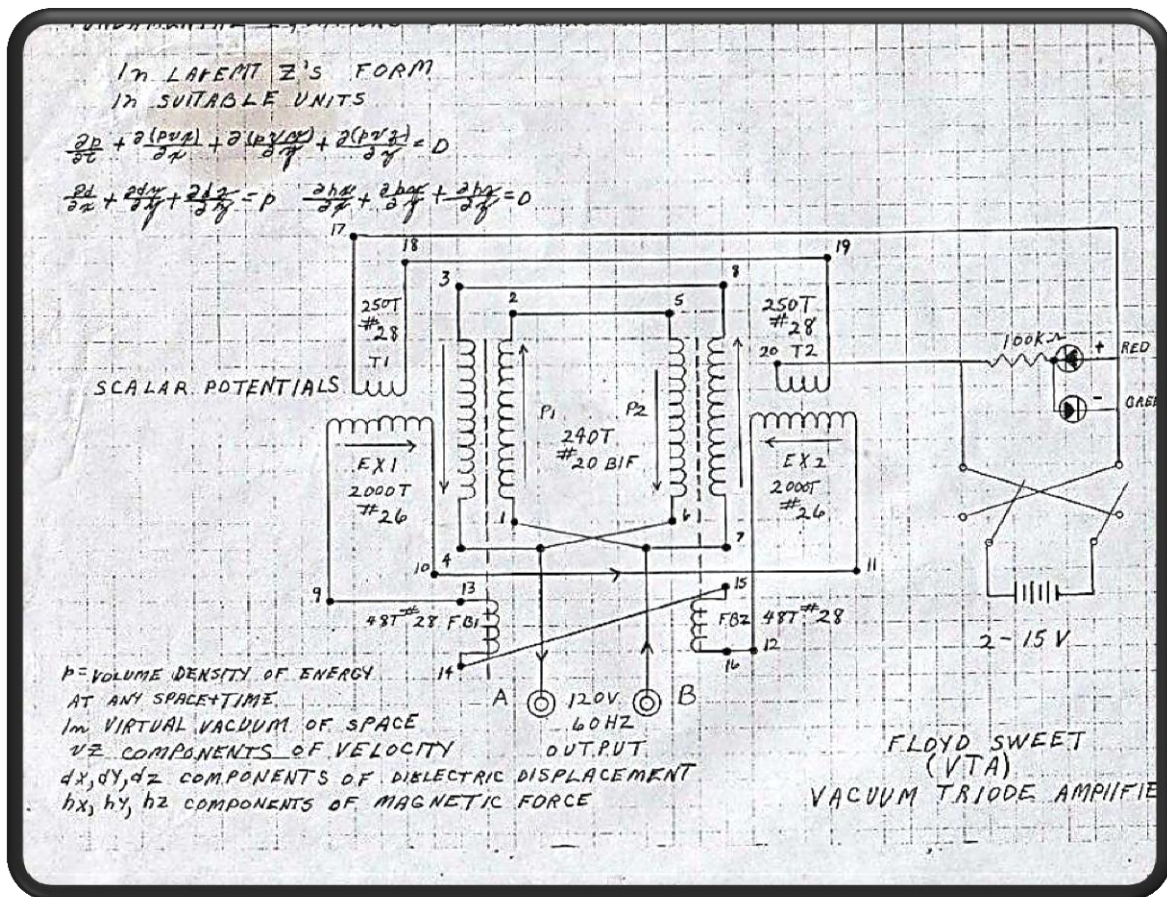 In LAREMTT Z's FORM
In SUITABLE UNITS
17
18
19
3
8
2
5
250T
#28
T1
250T
#28
20 T2
100KΩ
+ RED
-
SCALAR POTENTIALS
P1
P2
240T
#20 BIF
EX1
2000T
#26
EX2
2000T
#26
1
6
4
7
10
11
9
13
15
48T #28 FB1
FB2 48T #28
14
16
12
2-15 V
A 120V. B
60HZ
OUTPUT
p=VOLUME DENSITY OF ENERGY
AT ANY SPACE+TIME
Im VIRTUAL VACUUM OF SPACE
VZ COMPONENTS OF VELOCITY
dX,dY,dZ COMPONENTS OF DIELECTRIC DISPLACEMENT
hx, hy, hz COMPONENTS OF MAGNETIC FORCE
FLOYD SWEET
(VTA)
VACUUM TRIODE AMPlIFIE